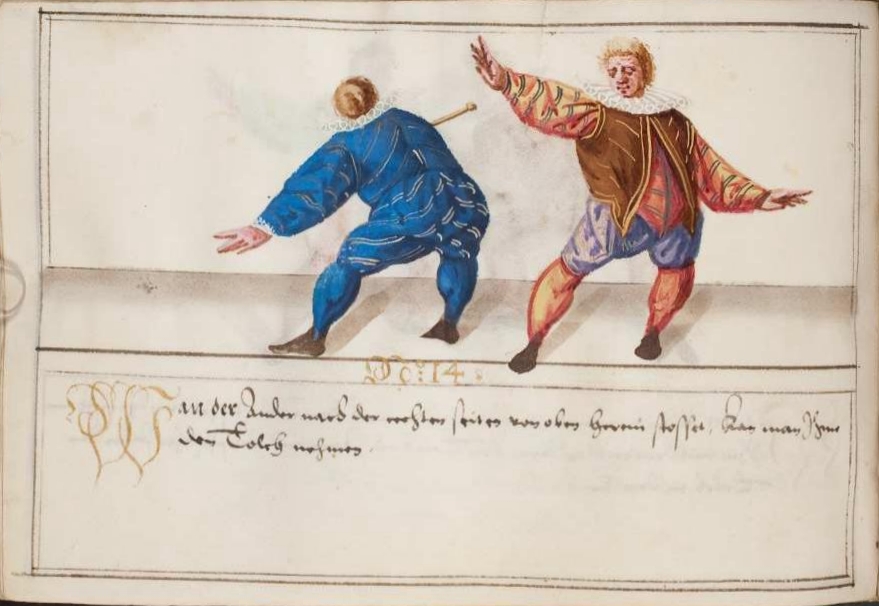 No: 14.
Wan der Ander nach der rechten seiten von oben herein stosset, kan man Ihme
den Tolch nehmen.